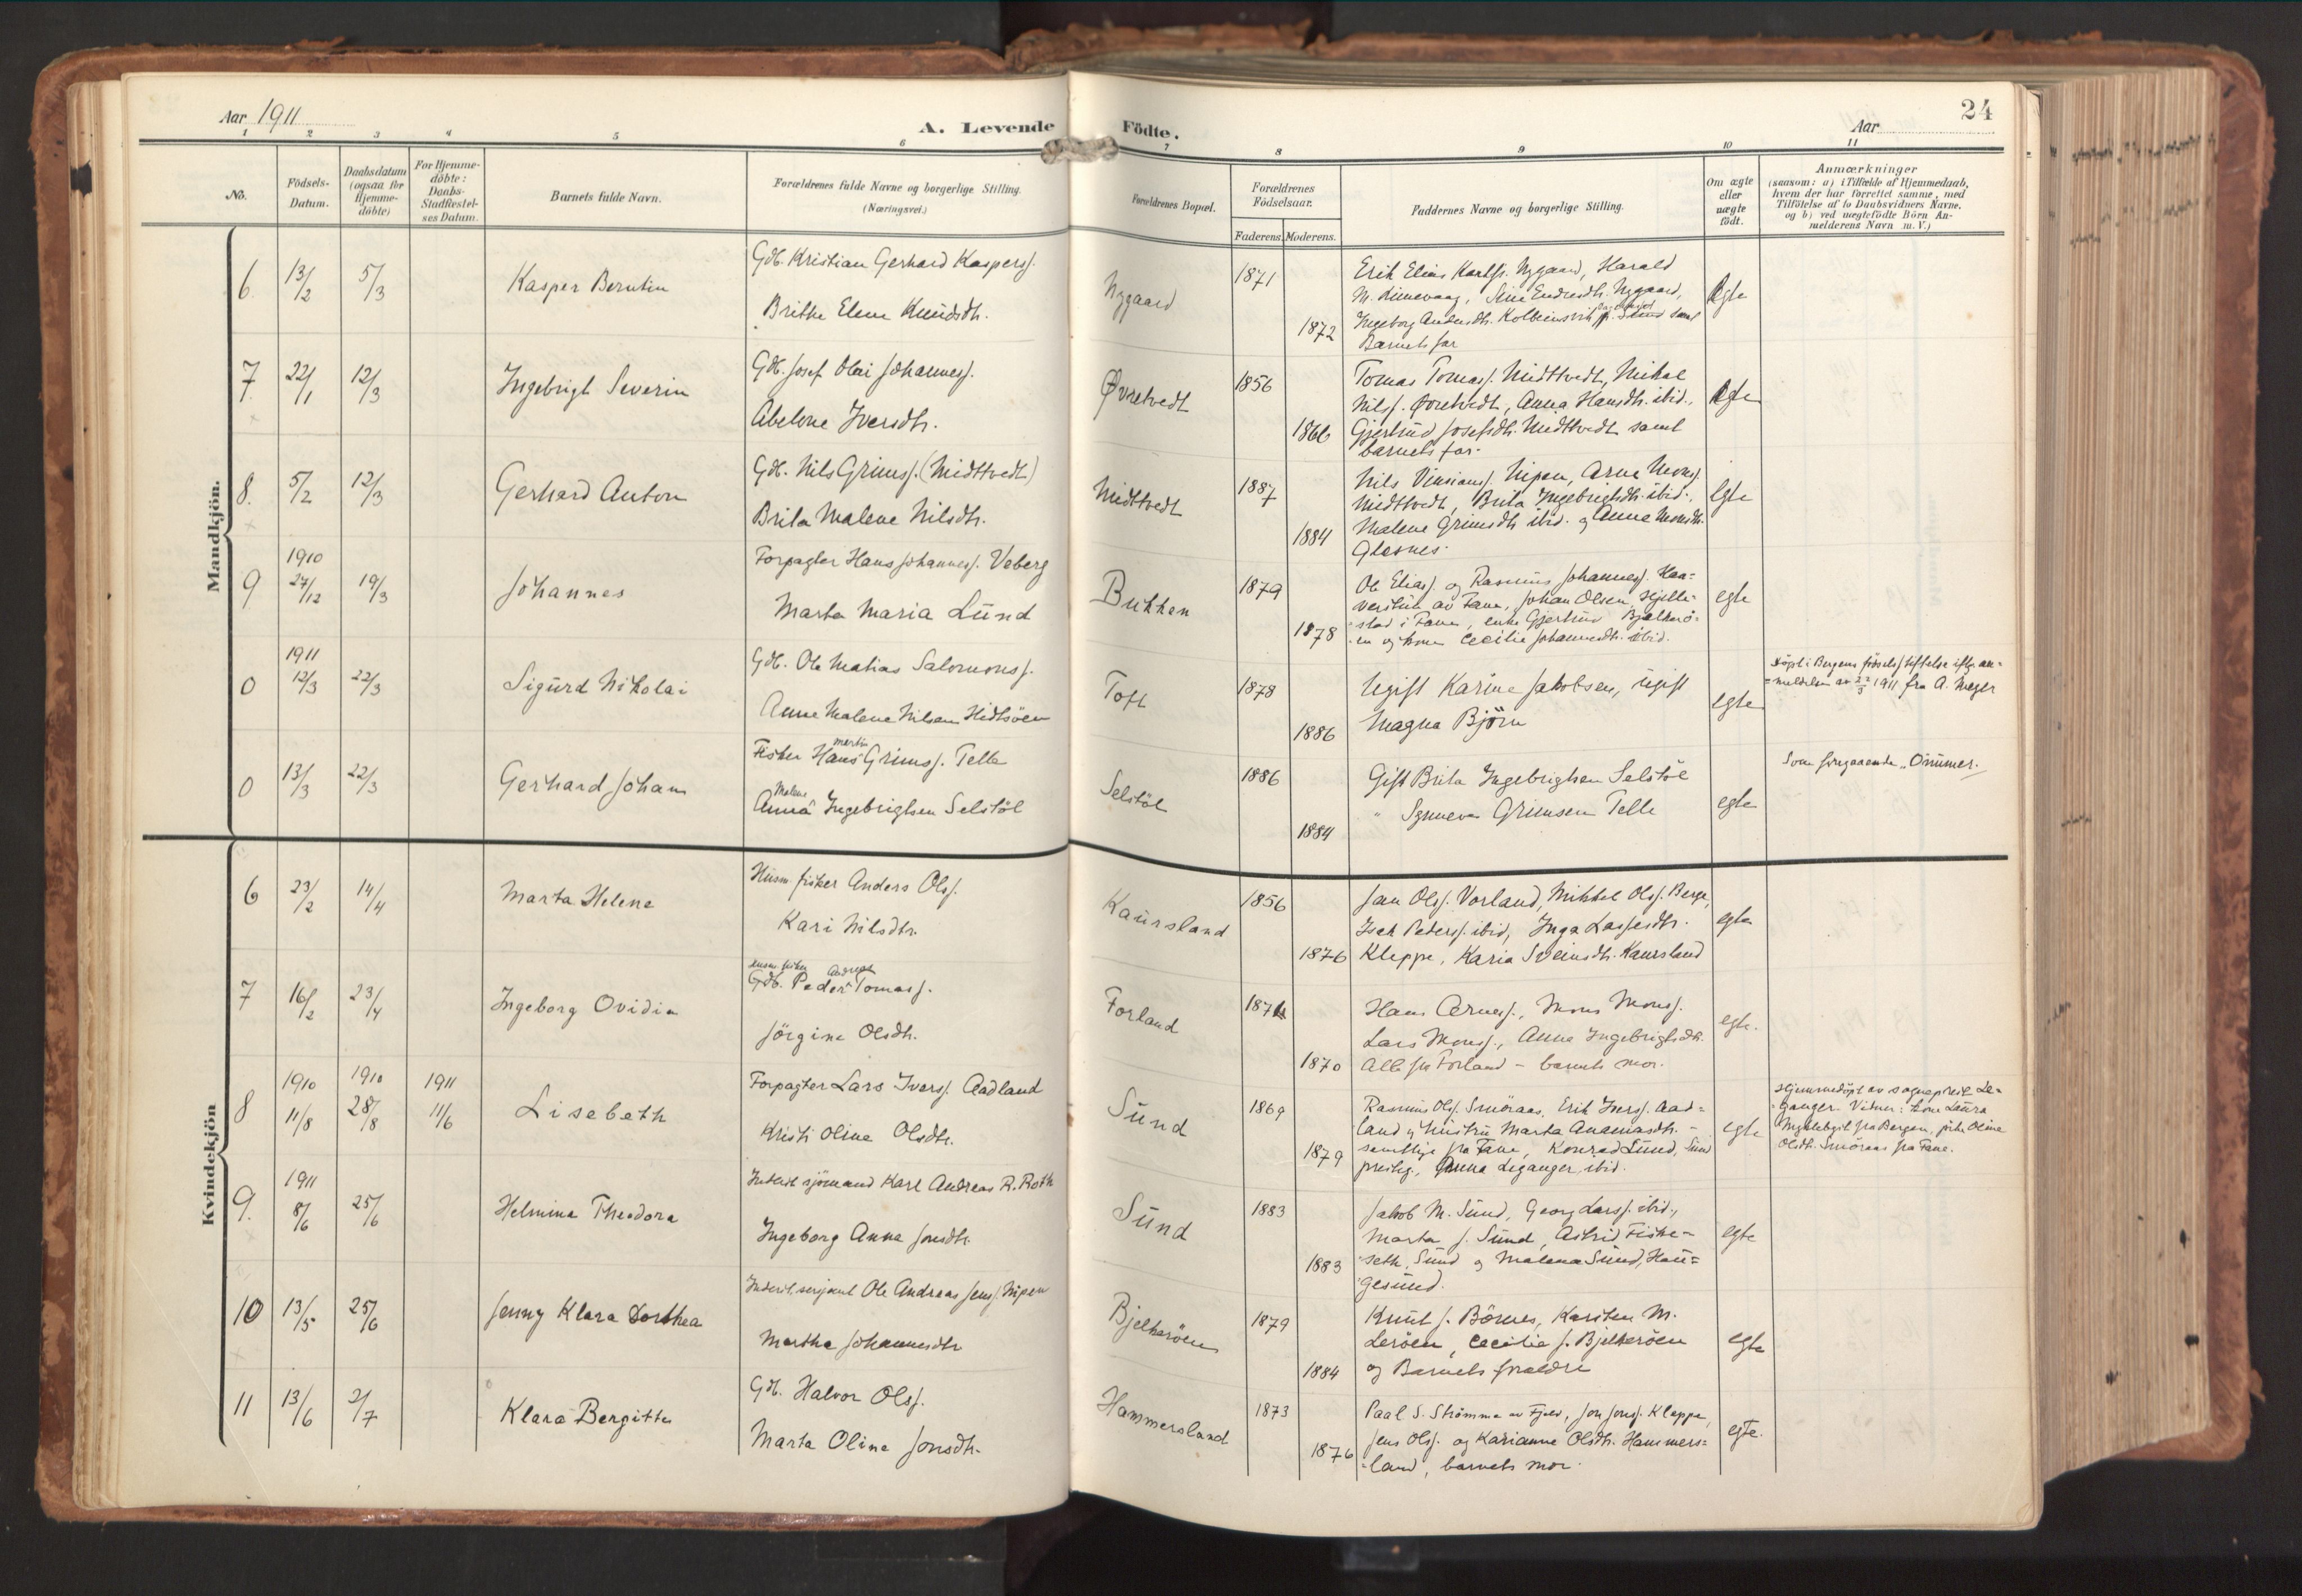 Aar 1911
A. Levende Födte.
Aar
24
1 2 3 4 5 6 7 8 9 10 11
No.
Födsels-
Datum.
Daabsdatum
(ogsaa for
Hjemme-
döbte)
For Hjemme-
döbte:
Daabs-
Stadfæstel-
ses Datum.
Barnets fulde Navn.
Forældrenes fulde Navne og borgerlige Stilling.
(Næringsvei.)
Forældrenes Bopæl.
Forældrenes
Födselsaar.
Faderens. Moderens.
Faddernes Navne og borgerlige Stilling.
Om ægte
eller
uægte
födt.
Anmærkninger
(saasom: a) i Tilfælde af Hjemmedaab,
hvem der har forrettet samme, med
Tilföielse af to Daabsvidners Navne.
og b) ved uægtefödte Börn An-
melderens Navn m. V.)
Mandkjön.
6. 13/2 5/3
Kasper Berntin
Gdb. Kristian Gerhard Kaspersf.
Brithe Elene Knudsdtr.
Nygaard
1871
1872
Erik Elias Karlsf. Nygaard, Harald
M. Limevaag, Sina Endresdtr. Nygaard,
Ingeborg Andersdtr. Kolbeinsvik Sund samt
Barnets far
Egte
7. 22/1 12/3
Ingebrigt Severin
Gdb. Josef Olai Johannesf.
Abelone Iversdtr.
Øvretvedt
1856
1866
Tomas Tomasf. Midttvedt, Mikal
Nilsf. Øvretvedt, Anna Hansdtr. ibid.,
Gjertrud Josefsdtr. Midttvedt samt
barnets far.
Egte
8. 5/2 12/3
Gerhard Anton
Gdb. Nils Grimsf. (Midttvedt)
Brita Malene Nilsdtr.
Midttvedt
1887
1884
Nils Vinsiansf. Nipen, Arne Monsf.
Midttvedt, Brita Ingebrigtsdtr. ibid.,
Malene Grimsdtr. ibid. og Anna Monsdtr.
Glesnes.
Egte
9 1910 27/12 19/3
Johannes
Forpagter Hans Johannesf. Vaberg
Marta Maria Lund
Bukken
1879
1878
Ole Eliasf. og Rasmus Johannesf. Kaa=
verstuen av Fana, Johan Olsen, Hjelle=
stad i Fana, enke Gjertrud Bjelkarö=
en og kone Cecilie Johannesdtr. ibid.
egte
0 1911 12/3 22/3
Sigurd Nikolai
Gdb. Ole Matias Salomonsf.
Anne Malene Nilsen Hidtsöen
Toft
1878
1886
Ugift Karine Jakobsen, ugift
Magna Björn
egte
Döpt i Bergens födselsstiftelse iflg. an=
=meldelse av 22/3 1911 fra A. Meyer
0 13/3 22/3
Gerhard Johan
Fisker Hans Martin Grimsf. Telle
Anna Malene Ingebrigtsen Selstöl
Selstöl
1886
1884
Gift Brita Ingebrigtsen Selstöl
" Synneva Grimsen Telle
egte
Som foregaaende Onumer.
Kvindekjön
6 23/2 14/4
Marta Helena
Husm. fisker Anders Olsf.
Kari Nilsdtr.
Kaursland
1856
1876
Jan Olsf. Vorland, Mikkel Olsf. Berge,
Isak Pedersf. ibid, Inga Lassesdtr.
Kleppe, Karia Sveinsdtr. Kaursland
egte
7 16/2 23/4
Ingeborg Ovidia
Gdb. Peder Andreas Tomasf.
Jörgine Olsdtr.
Forland
1871
1870
Hans Arnesf., Mons Monsf.
Lars Monsf., Anna Ingebrigtsdtr.
Alle fra Forland - barnets mor.
egte.
8 1910 11/8 1910 28/8 1911 11/6
Lisebeth
Forpagter Lars Iversf. Aadland
Kristi Oline Olsdtr.
Sund
1869
1879
Rasmus Olsf. Smöraas, Erik Iversf. Aad=
land og hustru Marta Andreasdtr. -
samtlige fra Fana, Konrad Lund, Sund
presteg., Anna Leganger, ibid.
egte
Hjemmedöpt av sogneprest Le=
=ganger. Vitner: kone Laura
Myklebust fra Bergen, pike Oline
Olsdtr. Smöraas fra Fane.
9. 1911 8/6 25/6
Helmina Theodora
Inderst sjömand Karl Andreas R. Roth
Ingeborg Anna Jonsdtr.
Sund
1883
1883
Jakob M. Sund, Georg Larsf. ibid.,
Marta J. Sund, Astrid Fiske=
seth, Sund og Malena Sund, Hau=
gesund.
egte
10 13/5 25/6
Jenny Klara Dorthea
Inderst serjant Ole Andreas Jensf. Nipen
Martha Johannesdtr
Bjelkeröen
1879
1884
Knut J. Börnes, Karsten M.
Leröen, Cecilia J. Bjelkeröen
og Barnets foreldre
egte
11 13/6 2/7
Klara Bergitte
Gdb. Halvor Olsf.
Marta Oline Jonsdtr.
Hammersland
1873
1876
Paal S. Strömme av Fjeld, Jon Jonsf. Kleppe,
Jens Olsf. og Karianne Olsdtr. Hammers=
=land, barnets mor.
egte.